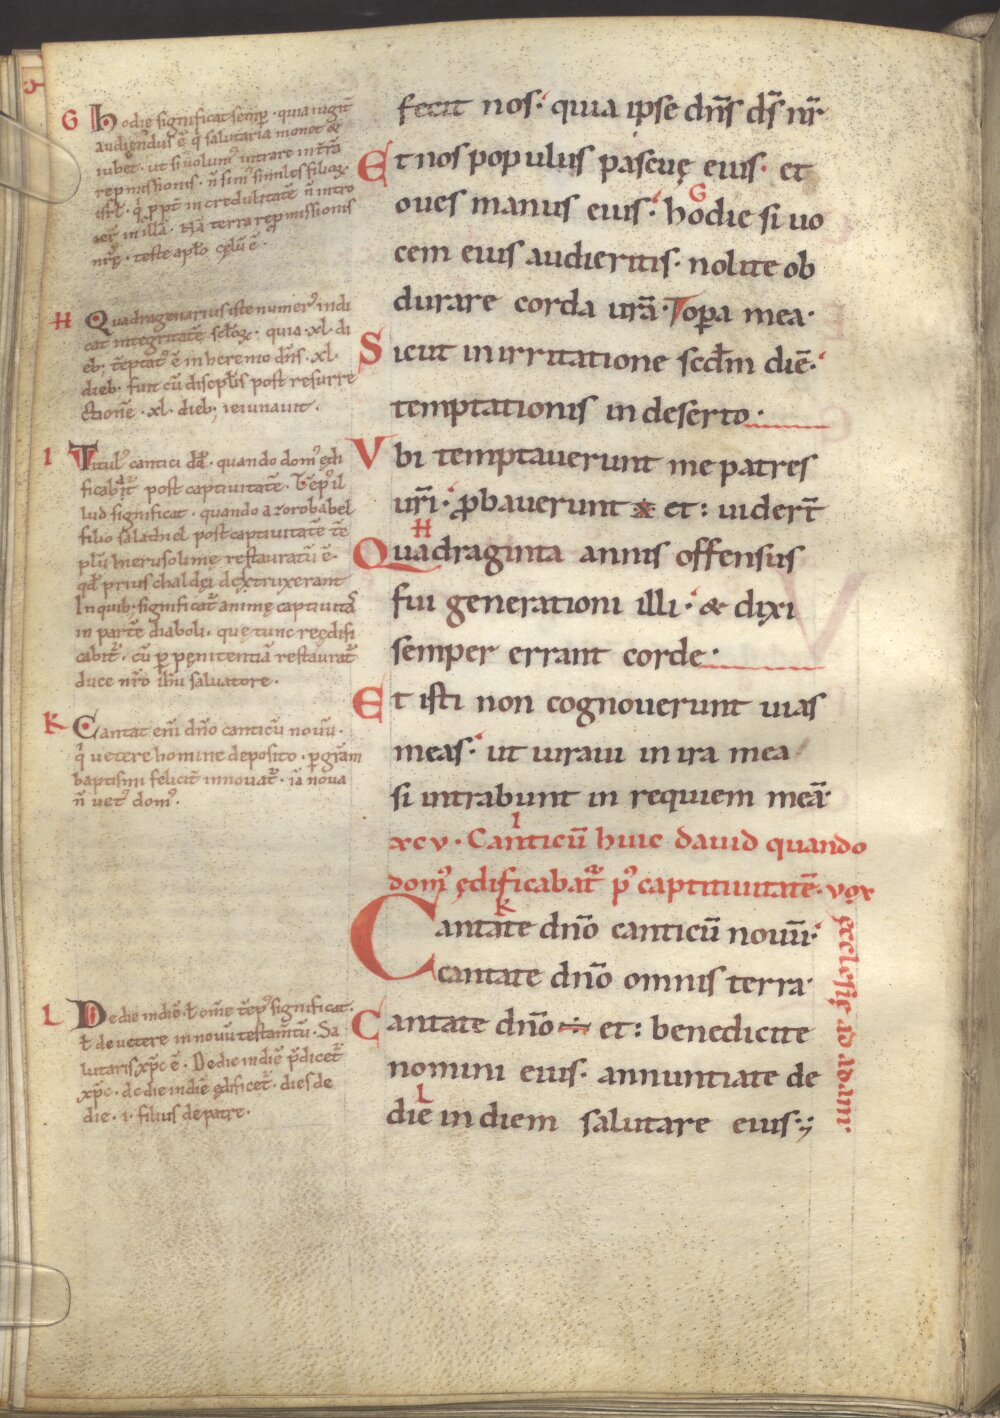 G hodie significat semp̄ · qua iugit̄
audiendus ē q̄ salutaria monet &
iubet · ut si uolum᾽ intrare in t̄rā
repmissionis · ñ sim᾽ similes filioꝝ
isrł · q̄ ꝓpt̄ incredulitatē ñ intro
iet̄ in illā · Nā terra repmissionis
nr̄ę · teste apło cęlū ē ·
H Quadragenarius iste numer᾽ indi
cat integritatē scłoꝝ · quia · xl · di
eb; tēptat᾽ ē in heremo dn̄s · xl ·
dieb· fuit cū discipłis post resurre
ctionē · xl · dieb; ieiunauit ·
I Titul᾽ cantici dd̄ · quando dom᾽ ędi
ficabat̄ post captiuitatē ·
lud significat · quando a zorobabel
filio salathiel post captiuitatē tē
plū hierusolimę restauratū ē ·
qd̄ prius chaldęi dextruxerant
In quib· significat̄ animę captiuita
in partē diaboli · quę tunc reędifi
cabit̄ · cū ꝑ pęnitentiā restaurat̄
duce nr̄o ihū saluatore ·
K Cantat eni dn̄o canticū nouū ·
q̄ uetere homine deposito · ꝑ gr̄am
baptismi felicit̄ innouat̄ · iā noua
ñ uet᾽ dom᾽ ·
L De die in diē · ł om̄e tēp᾽ significat ·
ł de uetere in nouū testam̄tū · Sa
lutaris xp̄c ē · De die in diē p̄dicet̄
xp̄c · de die in diē ędificet̄ · dies de
die · i · filius de patre ·
fecit nos· quia ipse dn̄s ds̄ nr̄
Et nos populus pascuę eius· et
G
oues manus eius· hodie si uo
cem eius audieritis· nolite ob
durare corda ur̄a· Topa mea·
Sicut in irritatione scd̄m diē·
temptationis in deserto·
Vbi temptauerunt me patres
ur̄i· ꝓbauerunt ※ et: uidert̄
H
Quadraginta annis offensus
fui generationi illi· & dixi
semper errant corde·
Et isti non cognouerunt uias
meas· ut iuraui in ira mea
si intrabunt in requiem meā·
I
xcv · Canticū huic dauid quando
dom᾽ ędificabat̄ p᾽ captiuitatē· vox
ęcclesię ad adam·
K
Cantate dn̄o canticū nouū·
cantate dn̄o omnis terra·
Cantate dn̄o ÷ et: benedicite
nomini eius· annuntiate de
L
die in diem salutare eius·;